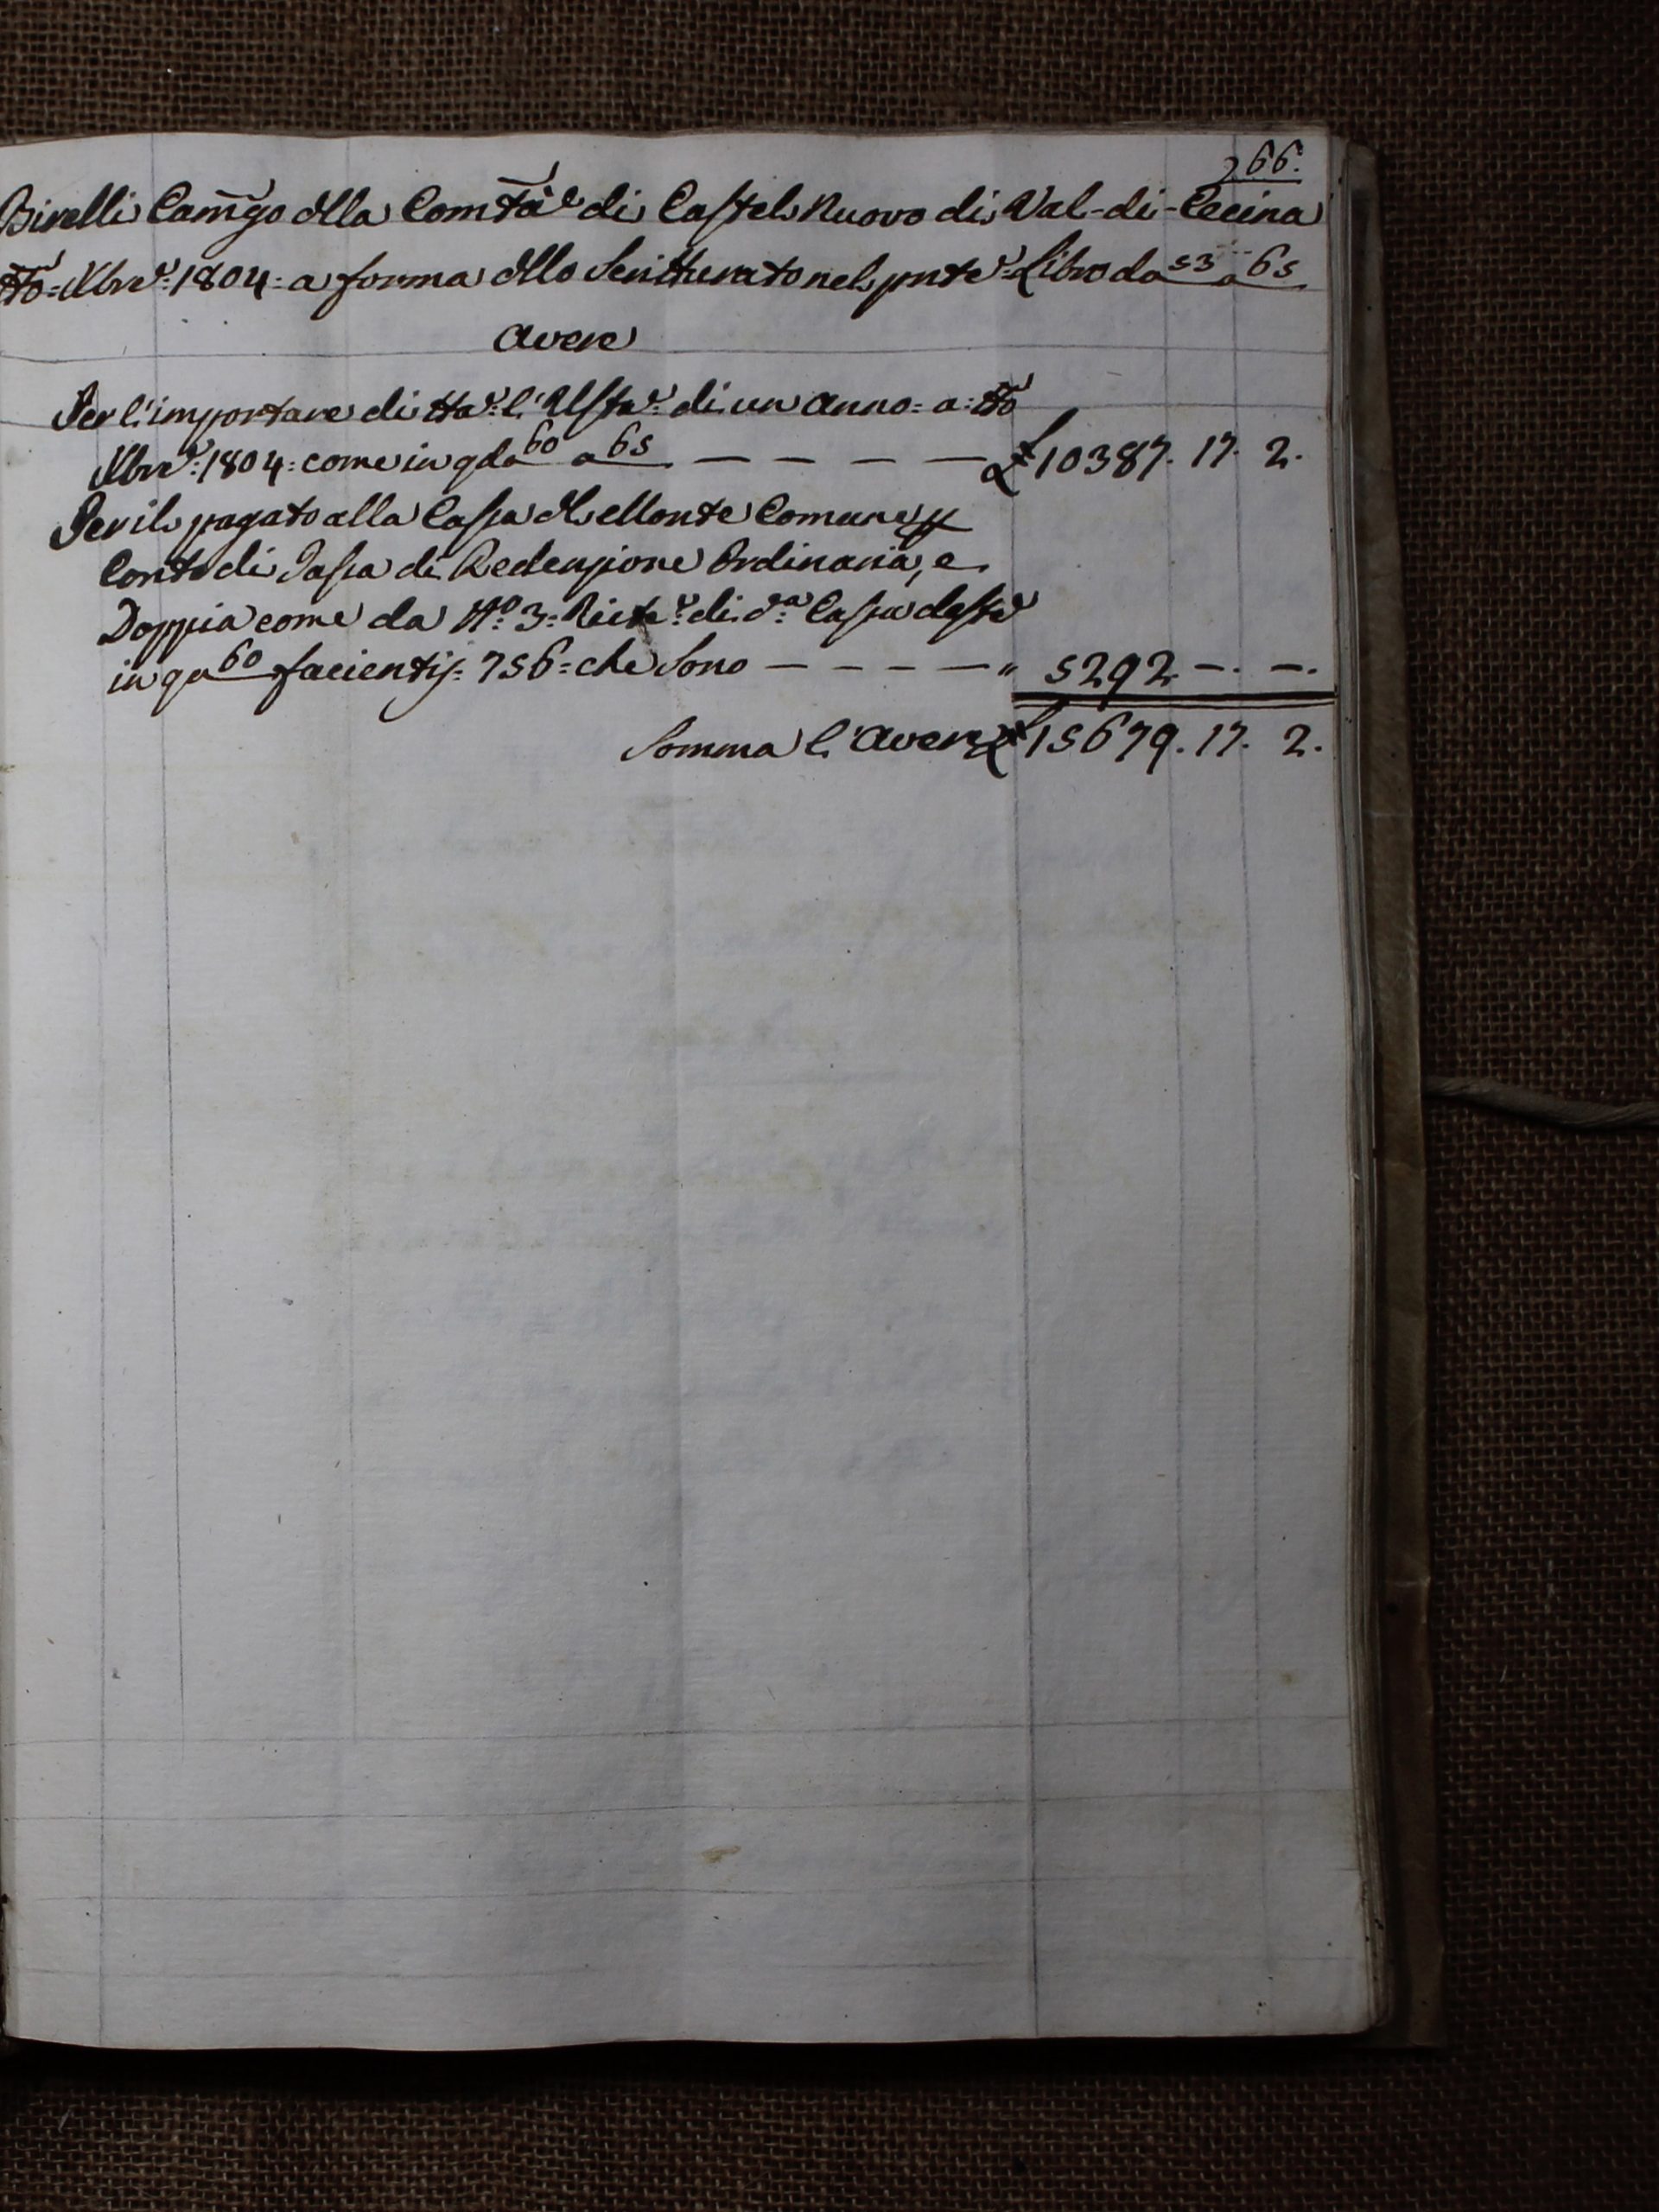 266.
Birelli Cam̃go dlla Com̃tà di Castel Nuovo di Val-di-Cecina
tto= Xbre: 1804: a forma dllo Scritturato nel pnte: Libro da 53 a 65
Avere
Per l'importare di tta: l'Usta: di un anno= a: tto
Xbre: 1804: come in qdo 60 a 65 — — — — £ 10387. 17. 2.
Per il pagato alla Cassa dl Monte Comune p
Conto di Tassa di Redenzione Ordinaria, e
Doppia come da No. 3= Ricte: di da: Cassa
in qo 60 facienti 756= che Sono — — — — " 5292 —. —.
Somma l'Avere £ 15679. 17. 2.